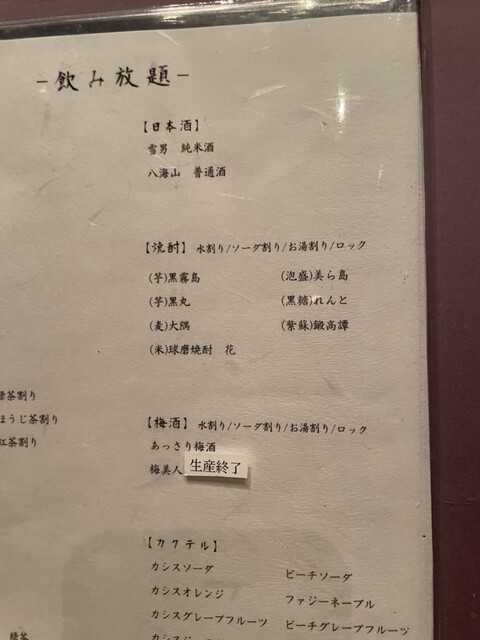 -飲み放題-
【日本酒】
雪男 純米酒
八海山 普通酒
【焼酎】 水割り/ソーダ割り/お湯割り/ロック
(芋)黒霧島 (泡盛)美ら島
(芋)黒丸 (黒糖)れんと
(麦)大隅 (紫蘇)鍛高譚
(米)球磨焼酎 花
緑茶割り
ほうじ茶割り
紅茶割り
【梅酒】 水割り/ソーダ割り/お湯割り/ロック
あっさり梅酒
梅美人 生産終了
【カクテル】
カシスソーダ ピーチソーダ
カシスオレンジ ファジーネーブル
カシスグレープフルーツ ピーチグレープフルーツ
緑茶